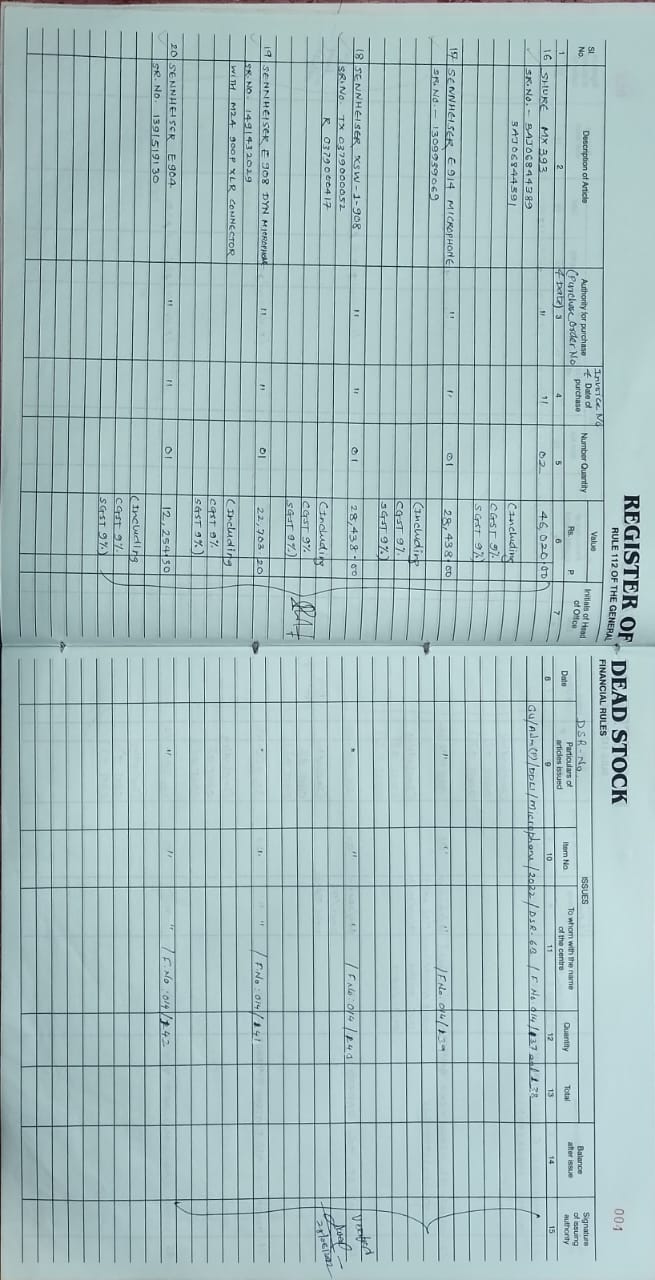 004
REGISTER OF DEAD STOCK
RULE 112 OF THE GENERAL FINANCIAL RULES
Sl. No.
Description of Article
Authority for purchase
(Purchase Order No
& Date)
Invoice No
& Date of purchase
Number Quantity
Value
Rs. P
Initials of Head of Office
DSR-No
ISSUES
Date
Particulars of articles issued
Item No.
To whom with the name of the centre
Quantity
Total
Balance after issue
Signature of issuing authority
1 2 3 4 5 6 7 8 9 10 11 12 13 14 15
16 SHURE MX 393 " " 02 46,020.00
SR.No.- 3AJ06844389
3AJ06844391
(Including
CGST 9%
SGST 9%)
GU/Adm(P)/DDCL/Microphone/2022/DSR-69 / F.No 014/137 and 138
17 SENNHEISER E 914 MICROPHONE " " 01 28,438.00 " " " / F.No 014/139
SR.No.- 1309999069
(Including
CGST 9%
SGST 9%)
18 SENNHEISER XSW-1-908 " " 01 28,438.00 " " / F.No:014/140
SR.No. TX 0379000052
R 0379000417
(Including
CGST 9%
SGST 9%)
19 SENNHEISER E 908 DYN MICROPHONE " " 01 22,703.20 " " " / F.No:014/141
SR.NO. 1491432029
WITH MZA 900P XLR CONNECTOR
(Including
CGST 9%
SGST 9%)
20 SENNHEISER E 904 " " 01 12,254.30 " " " / F.No:014/142
SR.No. 1391519130
(Including
CGST 9%
SGST 9%)